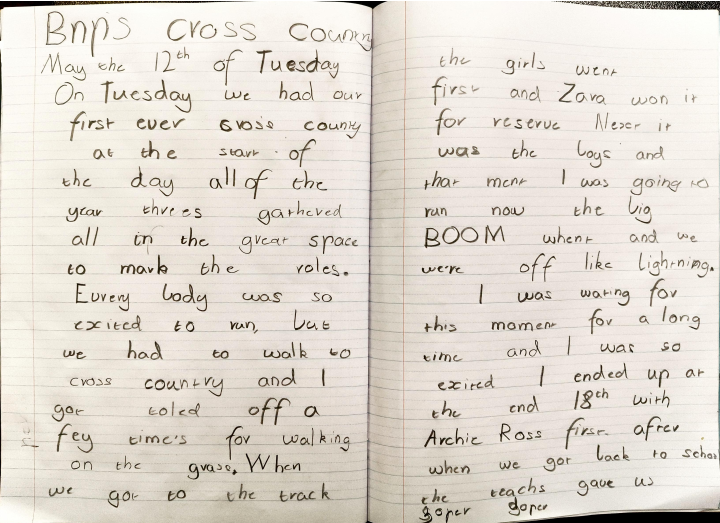 Bnps cross country
May the 12th of Tuesday
On Tuesday we had our
first ever cross county
at the start of
the day all of the
year three es gatheved
all in the great space
to mark the roles.
Euvery body was so
excited to run, but
we had to walk to
cross country and I
got toled off a
fey time's for walking
on the grass. When
we got to the track
the girls went
first and Zara won it
for reserve Nexer it
was the boys and
that ment I was going to
run now the big
BOOM whent and we
were off like lightning.
I was wating for
this moment for a long
time and I was so
exited I ended up at
the end 18th with
Archie Ross first. after
when we got back to school
the teachs gave us